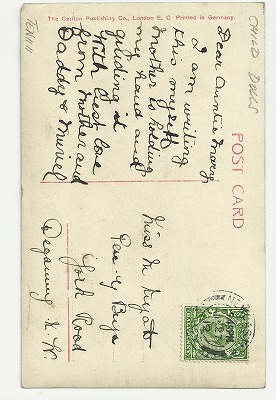 The Carlton Publishing Co., London E. C. Printed in Germany.
CHILD DOLLS
POST CARD
Dear Auntie Mary,
I am writing
this myself
Mother is holding
my hand and
guiding it
With best love
from Mother and
Daddy & Muriel
Miss M Myatt
York Road
Deganwy N. W.